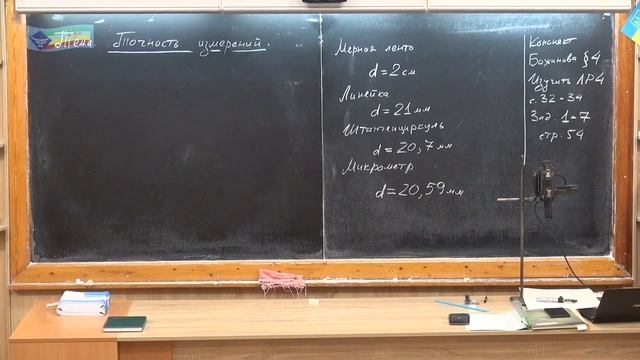 Тема Точность измерений.
Мерная лента
d = 2 см
Линейка
d = 21 мм
Штангенциркуль
d = 20,7 мм
Микрометр
d = 20,59 мм
Конспект
Божинова § 4
Изучить ЛР4
с. 32 - 34
Зад. 1 - 7
стр. 54